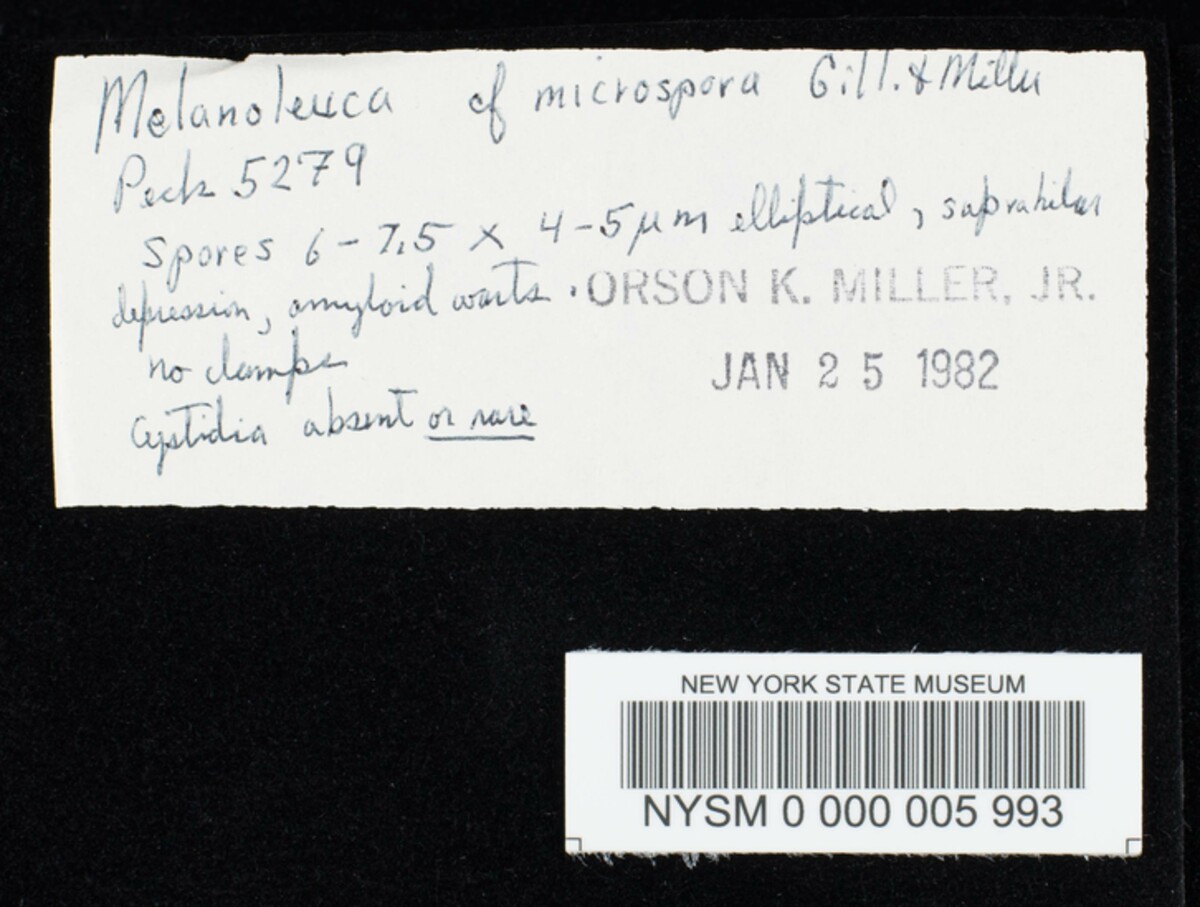 Melanoleuca cf microspora Gill. & Miller
Peck 5279
Spores 6-7.5 x 4-5 µm elliptical, suprahilar
depression, amyloid warts.
ORSON K. MILLER, JR.
no clamps
JAN 25 1982
Cystidia absent or rare
NEW YORK STATE MUSEUM
NYSM 0 000 005 993